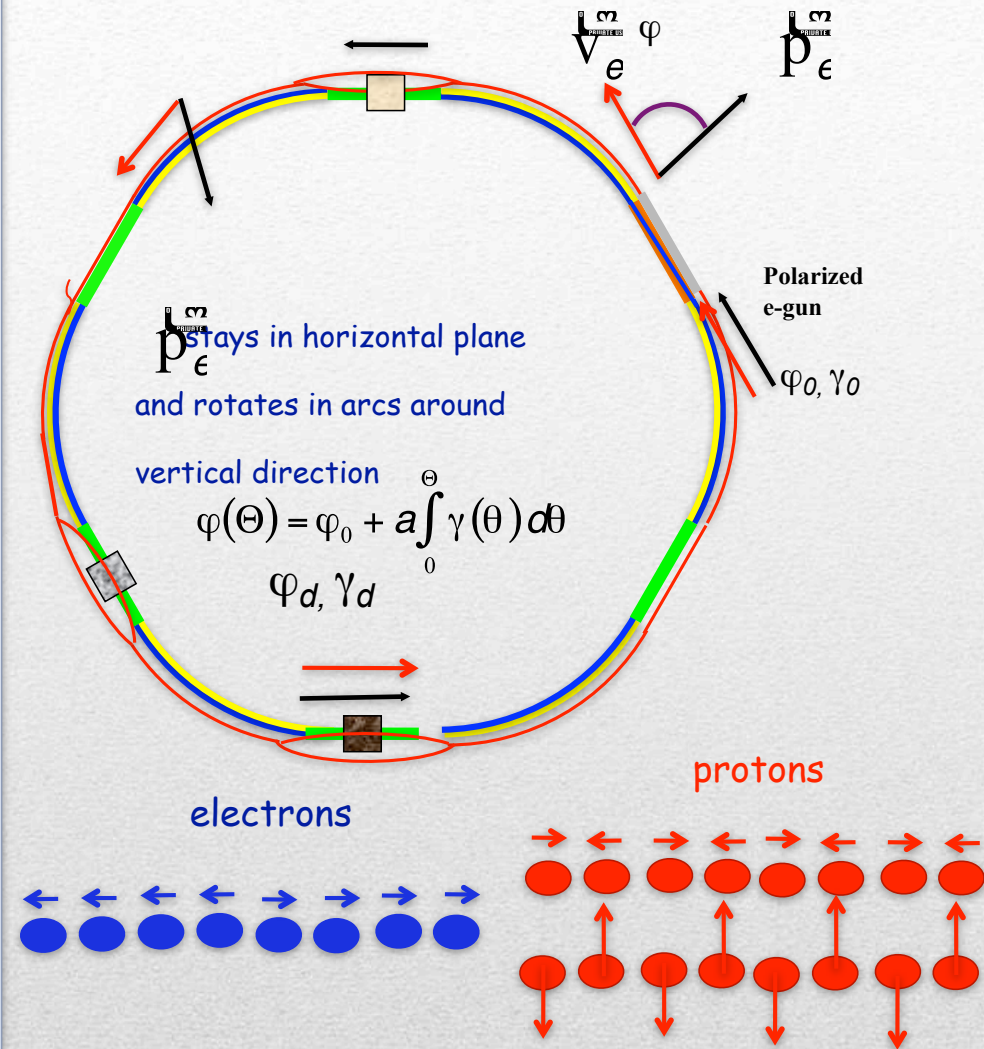 v e φ p e
Polarized
e-gun
φ0, γ0
p e stays in horizontal plane
and rotates in arcs around
vertical direction
φ(Θ) = φ0 + a∫0Θ γ(θ)dθ
φd, γd
protons
electrons